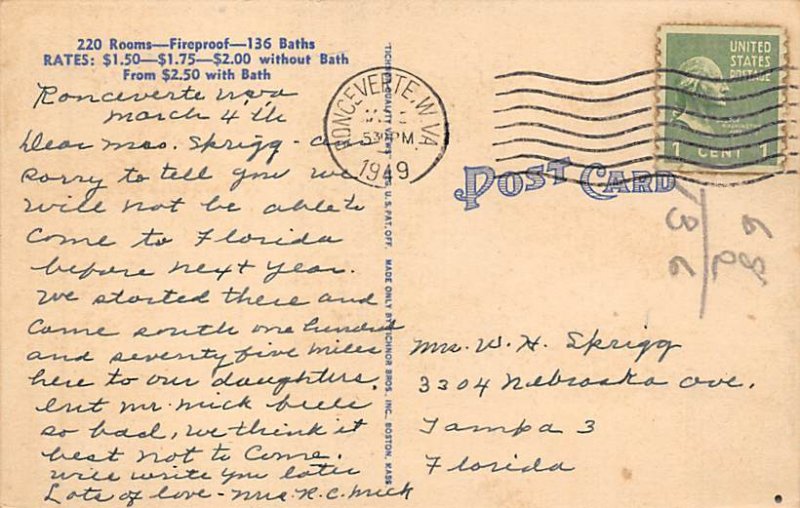 220 Rooms—Fireproof—136 Baths
RATES: $1.50—$1.75—$2.00 without Bath
From $2.50 with Bath
Ronceverte W.Va
March 4 th
Dear Mrs. Sprigg - am
sorry to tell you we
will not be able to
come to Florida
before next year.
We started there and
came south one hundred
and seventy five miles
here to our daughters,
but Mr. Mick feels
so bad, we think it
best not to come.
will write you later
Lots of love - Mrs R.C. Mick
MADE ONLY BY TICHNOR BROS., INC., BOSTON, MASS.
RONCEVERTE, W. VA.
530 PM
1949
UNITED
STATES
POSTAGE
1 CENT 1
POST CARD
68
2
136
Mrs. W. H. Sprigg
3304 Nebraska ave.
Tampa 3
Florida